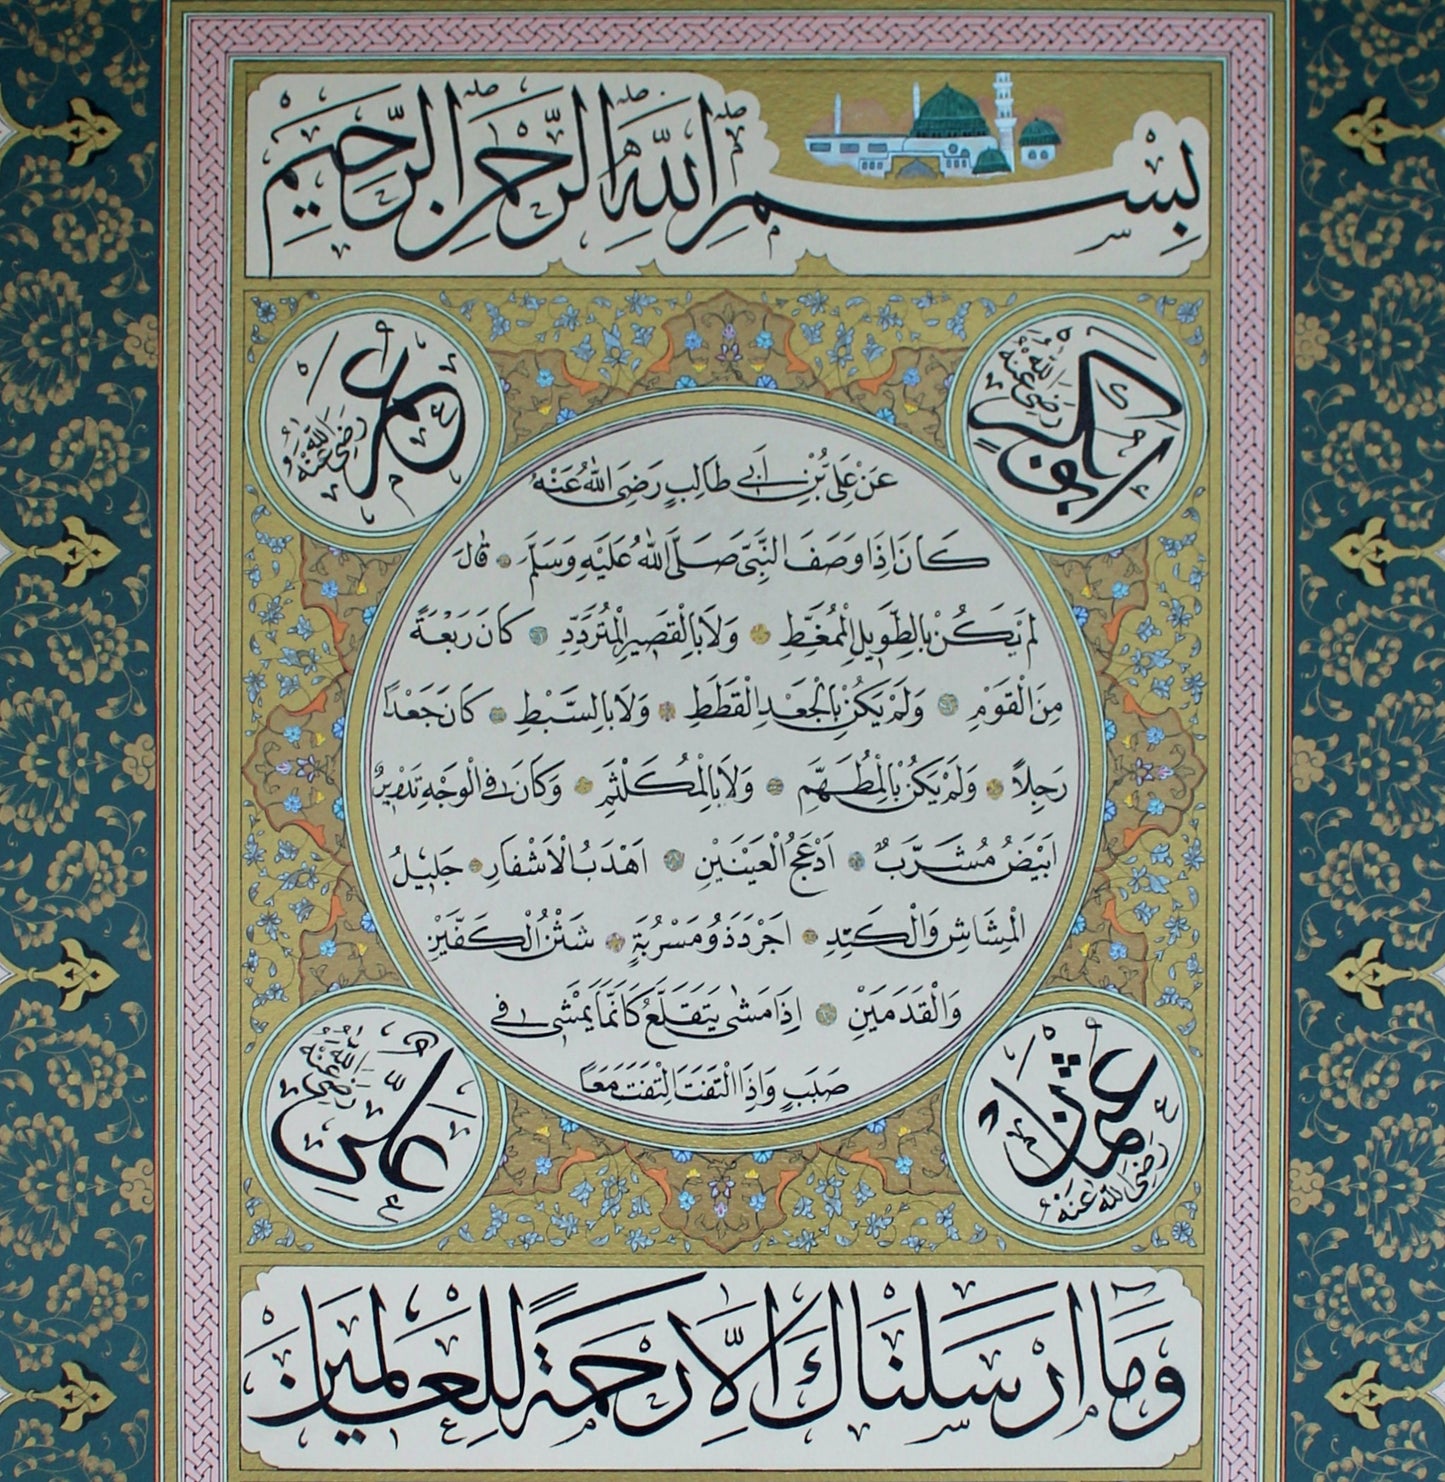 بِسْمِ اللَّهِ الرَّحْمَنِ الرَّحِيمِ
ابو بكر رضى الله عنه
عمر رضى الله عنه
عَنْ عَلِىِّ بْنِ اَبِى طَالِبٍ رَضِىَ اللهُ عَنْهُ
كَانَ اِذَا وَصَفَ النَّبِىَّ صَلَّى اللهُ عَلَيْهِ وَسَلَّمَ قَالَ
لَمْ يَكُنْ بِالطَّوِيلِ الْمُمَّغِطِ وَلَا بِالْقَصِيرِ الْمُتَرَدِّدِ كَانَ رَبْعَةً
مِنَ الْقَوْمِ وَلَمْ يَكُنْ بِالْجَعْدِ الْقَطَطِ وَلَا بِالسَّبْطِ كَانَ جَعْدًا
رَجِلًا وَلَمْ يَكُنْ بِالْمُطَهَّمِ وَلَا بِالْمُكَلْثَمِ وَكَانَ فِى الْوَجْهِ تَدْوِيرٌ
اَبْيَضُ مُشَرَّبٌ اَدْعَجُ الْعَيْنَيْنِ اَهْدَبُ الْاَشْفَارِ جَلِيلُ
الْمُشَاشِ وَالْكَتِدِ اَجْرَدُ ذُو مَسْرُبَةٍ شَثْنُ الْكَفَّيْنِ
وَالْقَدَمَيْنِ اِذَا مَشَى يَتَقَلَّعُ كَاَنَّمَا يَمْشِى فِى
صَبَبٍ وَاِذَا الْتَفَتَ الْتَفَتَ مَعًا
عثمان رضى الله عنه
على رضى الله عنه
وَمَا اَرْسَلْنَاكَ اِلَّا رَحْمَةً لِلْعَالَمِينَ